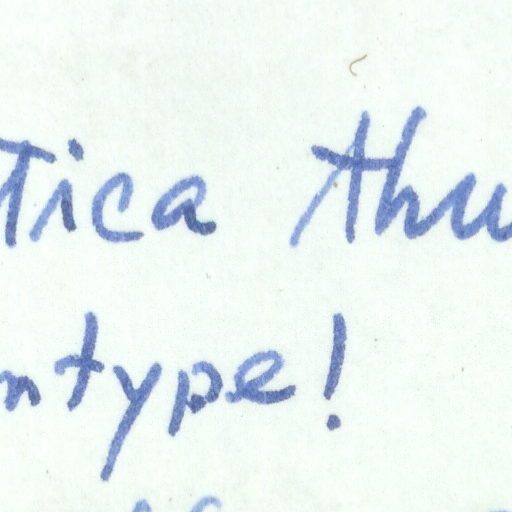 tica thu
ntype!